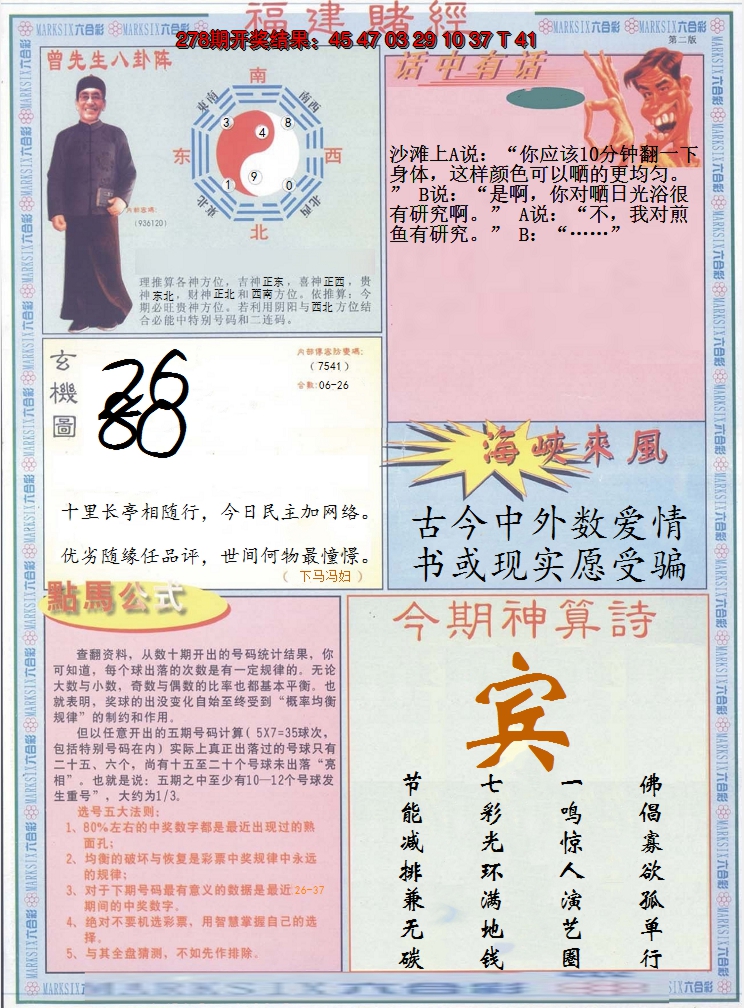 福建賭經
278期开奖结果：45 47 03 29 10 37 T 41
MARKSIX六合彩
第二版
曾先生八卦阵
南
东南
南西
3
8
4
东
西
9
1
0
东北
北西
北
内部密碼:
(936120)
理推算各神方位，吉神正东，喜神正西，贵
神东北，财神正北和西南方位。依推算：今
期必旺贵神方位。若利用阴阳与西北方位结
合必能中特别号码和二连码。
话中有话
沙滩上A说：“你应该10分钟翻一下
身体，这样颜色可以晒的更均匀。
” B说：“是啊，你对晒日光浴很
有研究啊。” A说：“不，我对煎
鱼有研究。” B：“……”
玄機圖
26
80
内部傳密防變碼:
(7541)
合数:06-26
十里长亭相随行，今日民主加网络。
优劣随缘任品评，世间何物最憧憬。
（ 下马冯妇 ）
海峡來風
古今中外数爱情
书或现实愿受骗
點馬公式
查翻资料，从数十期开出的号码统计结果，你
可知道，每个球出落的次数是有一定规律的。无论
大数与小数，奇数与偶数的比率也都基本平衡。也
就表明，奖球的出没变化自始至终受到“概率均衡
规律”的制约和作用。
但以任意开出的五期号码计算( 5X7=35球次，
包括特别号码在内）实际上真正出落过的号球只有
二十五、六个，尚有十五至二十个号球未出落“亮
相”。也就是说：五期之中至少有10—12个号球发
生重号”，大约为1/3。
选号五大法则：
1、80%左右的中奖数字都是最近出现过的熟
面孔；
2、均衡的破坏与恢复是彩票中奖规律中永远
的规律；
3、对于下期号码最有意义的数据是最近26-37
期间的中奖数字。
4、绝对不要机选彩票，用智慧掌握自己的选
择。
5、与其全盘猜测，不如先作排除。
今期神算詩
宾
佛倡寡欲孤单行
一鸣惊人演艺圈
七彩光环满地钱
节能减排兼无碳